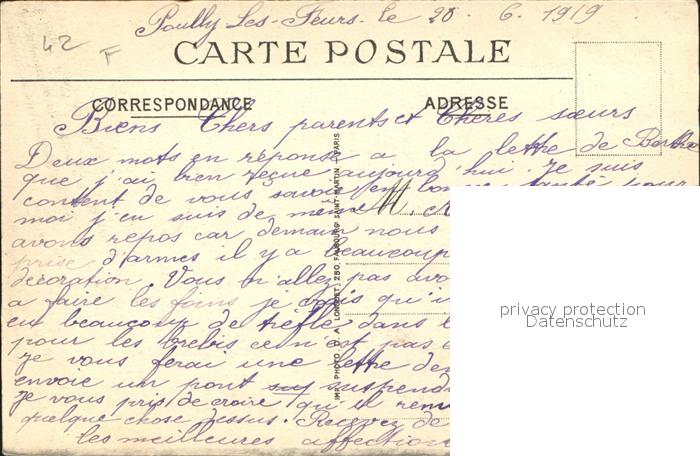 42 F
Pouilly Les-Feurs. le 20. 6. 1919
CARTE POSTALE
CORRESPONDANCE
ADRESSE
Biens Chers parents et Chères sœurs
Deux mots en réponse a la lettre de Berthe
que j'ai bien reçue aujourd'hui. Je suis
content de vous savoir en bonne santé pour
moi j'en suis de même M.
avons repos car demain nous
prise d'armes il y a beaucoup
décoration. Vous n'allez pas
a faire les foins je crois qu'i
eu beaucoup de trèfle, dans
pour les brebis ce n'est pas
Je vous ferai une lettre
envoie un pont suspend
Je vous pris de croire qu'il
quelque chose dessus. Recevez de
les meilleures affection
IMP. PHOTO D. A. LONGUET, 250, FAUBOURG SAINT-MARTIN - PARIS
privacy protection
Datenschutz